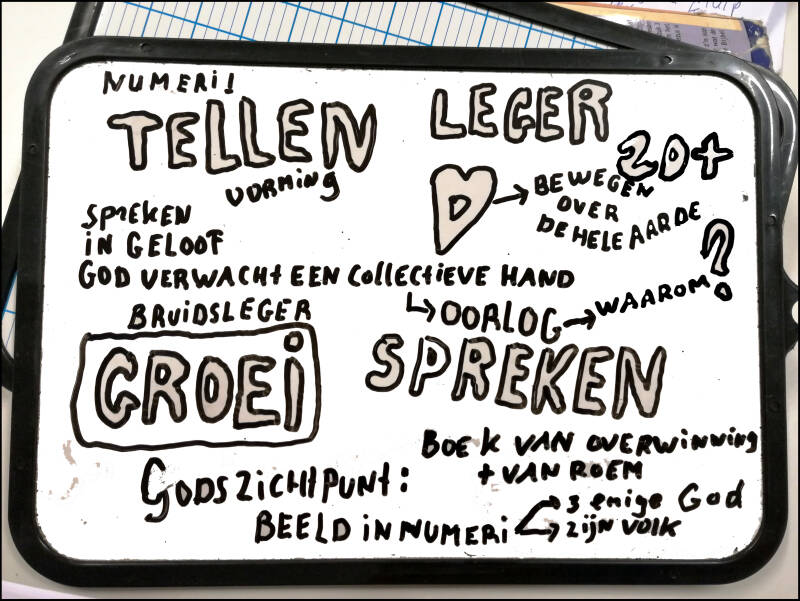 NUMERI!
TELLEN
VORMING
LEGER
20+
D → BEWEGEN
OVER
DE HELE AARDE
SPREKEN
IN GELOOF
GOD VERWACHT EEN COLLECTIEVE HAND
↳ OORLOG → WAAROM?
BRUIDSLEGER
GROEI
SPREKEN
BOEK VAN OVERWINNING
+ VAN ROEM
GODS ZICHTPUNT:
BEELD IN NUMERI → 3 enige God
→ zijn VOLK